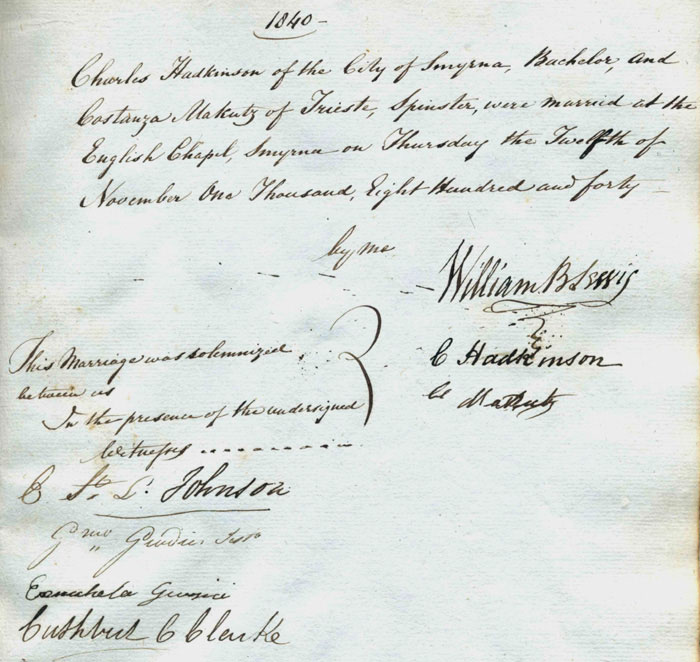 1840-
Charles Hadkinson of the City of Smyrna, Bachelor, and
Costanza Makutz of Trieste, Spinster, were married at the
English Chapel, Smyrna on Thursday the Twelfth of
November One Thousand, Eight Hundred and forty
by me
William B Lewis
This Marriage was solemnized
between us
C Hadkinson
C Makutz
In the presence of the undersigned
Witnesses
C St. L. Johnson
Cuthbert C Clarke